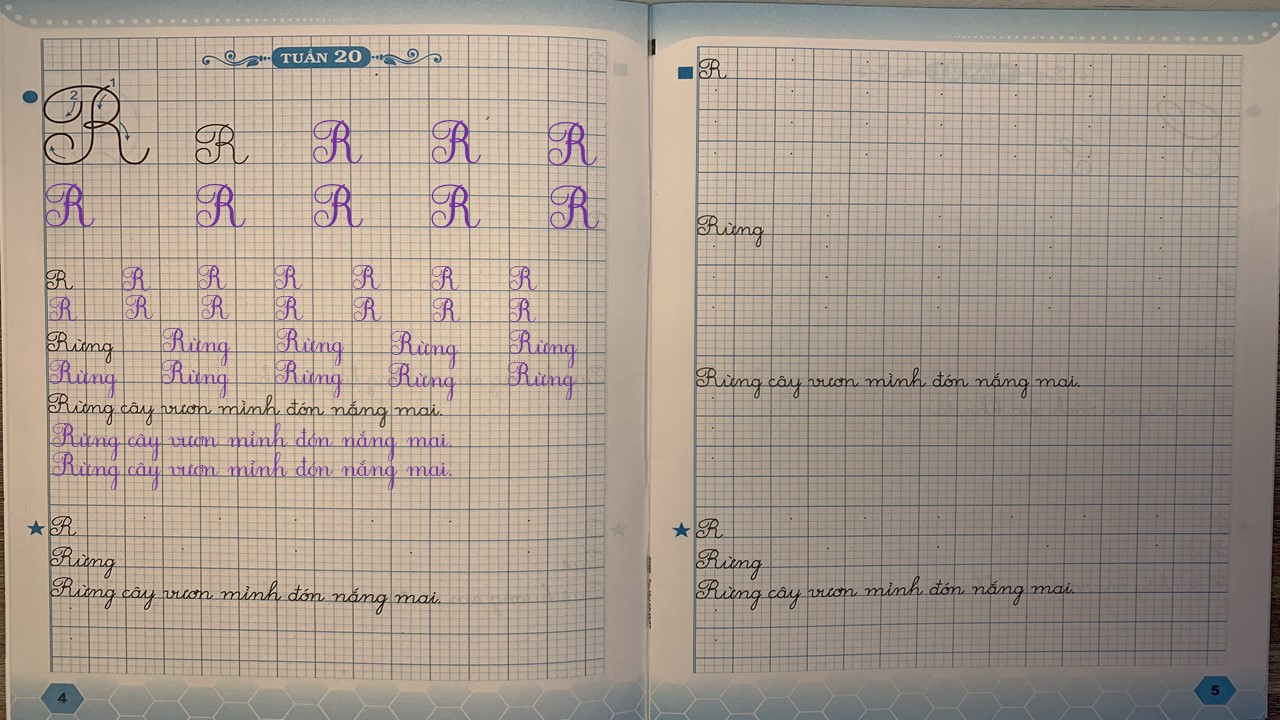 TUẦN 20
1
2
R R R R R
R R R R R
R R R R R R R
R R R R R R R
Rừng Rừng Rừng Rừng Rừng
Rừng Rừng Rừng Rừng Rừng
Rừng cây vươn mình đón nắng mai.
Rừng cây vươn mình đón nắng mai.
Rừng cây vươn mình đón nắng mai.
R
Rừng
Rừng cây vươn mình đón nắng mai.
4
R
Rừng
Rừng cây vươn mình đón nắng mai.
R
Rừng
Rừng cây vươn mình đón nắng mai.
5